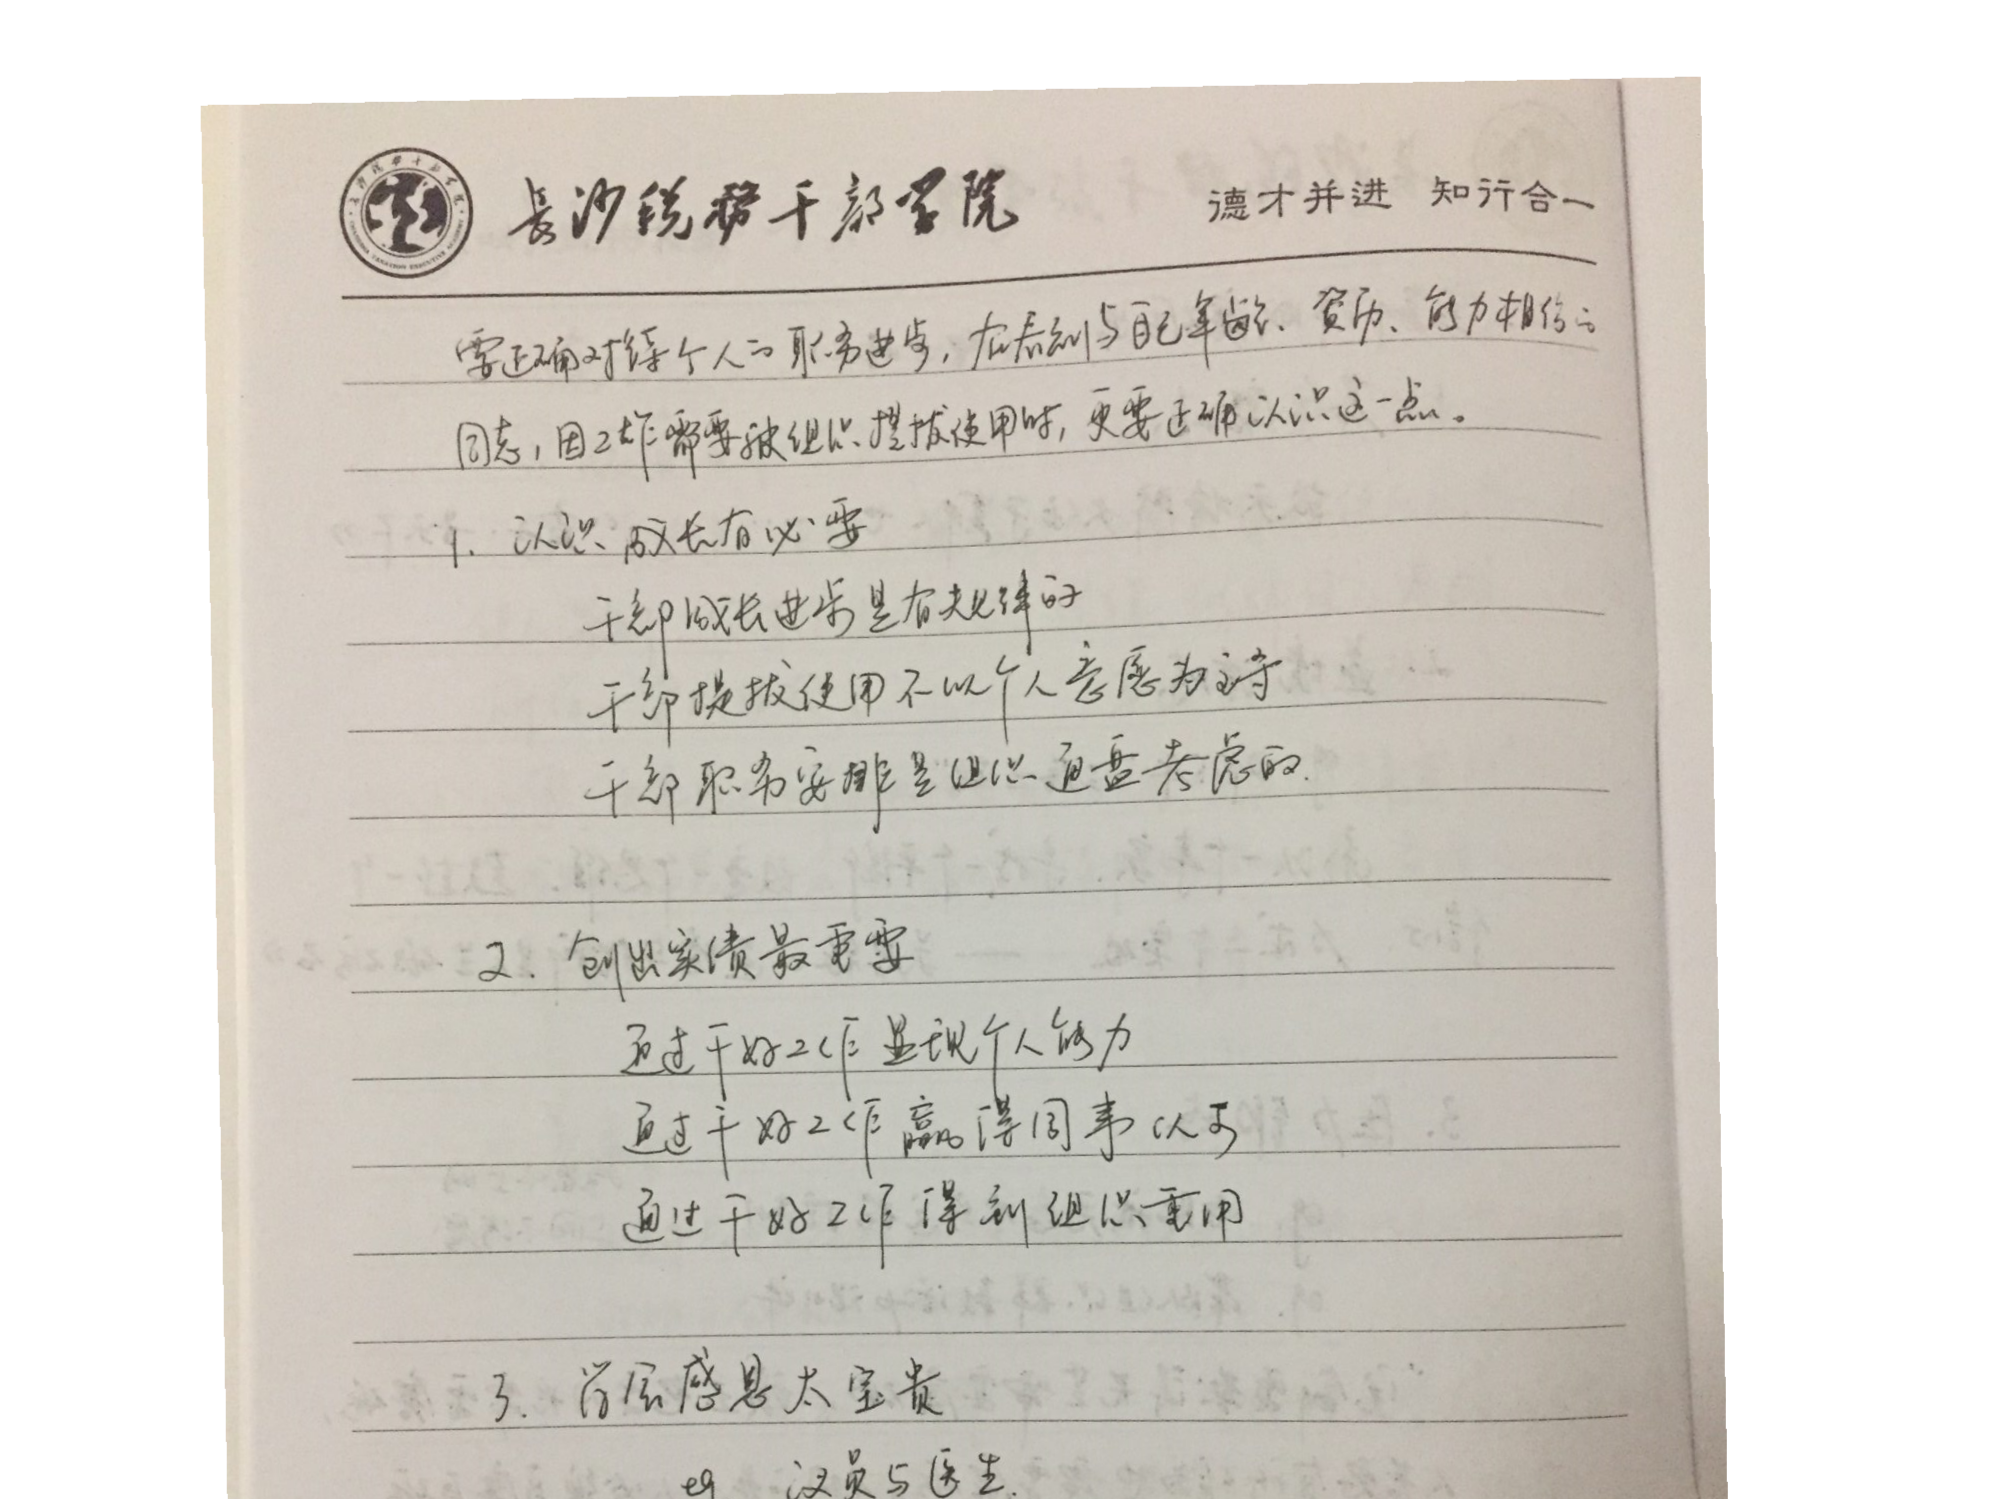 长沙税务干部学院 德才并进 知行合一
要正确对待个人的职务进步，在看到与自己年龄、资历、能力相仿的
同志，因工作需要被组织提拔使用时，更要正确认识这一点。
1. 认识成长有必要
干部成长进步是有规律的
干部提拔使用不以个人意愿为主导
干部职务安排是组织通盘考虑的.
2. 创出实绩最重要
通过干好工作显现个人能力
通过干好工作赢得同事认可
通过干好工作得到组织重用
3. 学会感恩太宝贵
eg 议员与医生.